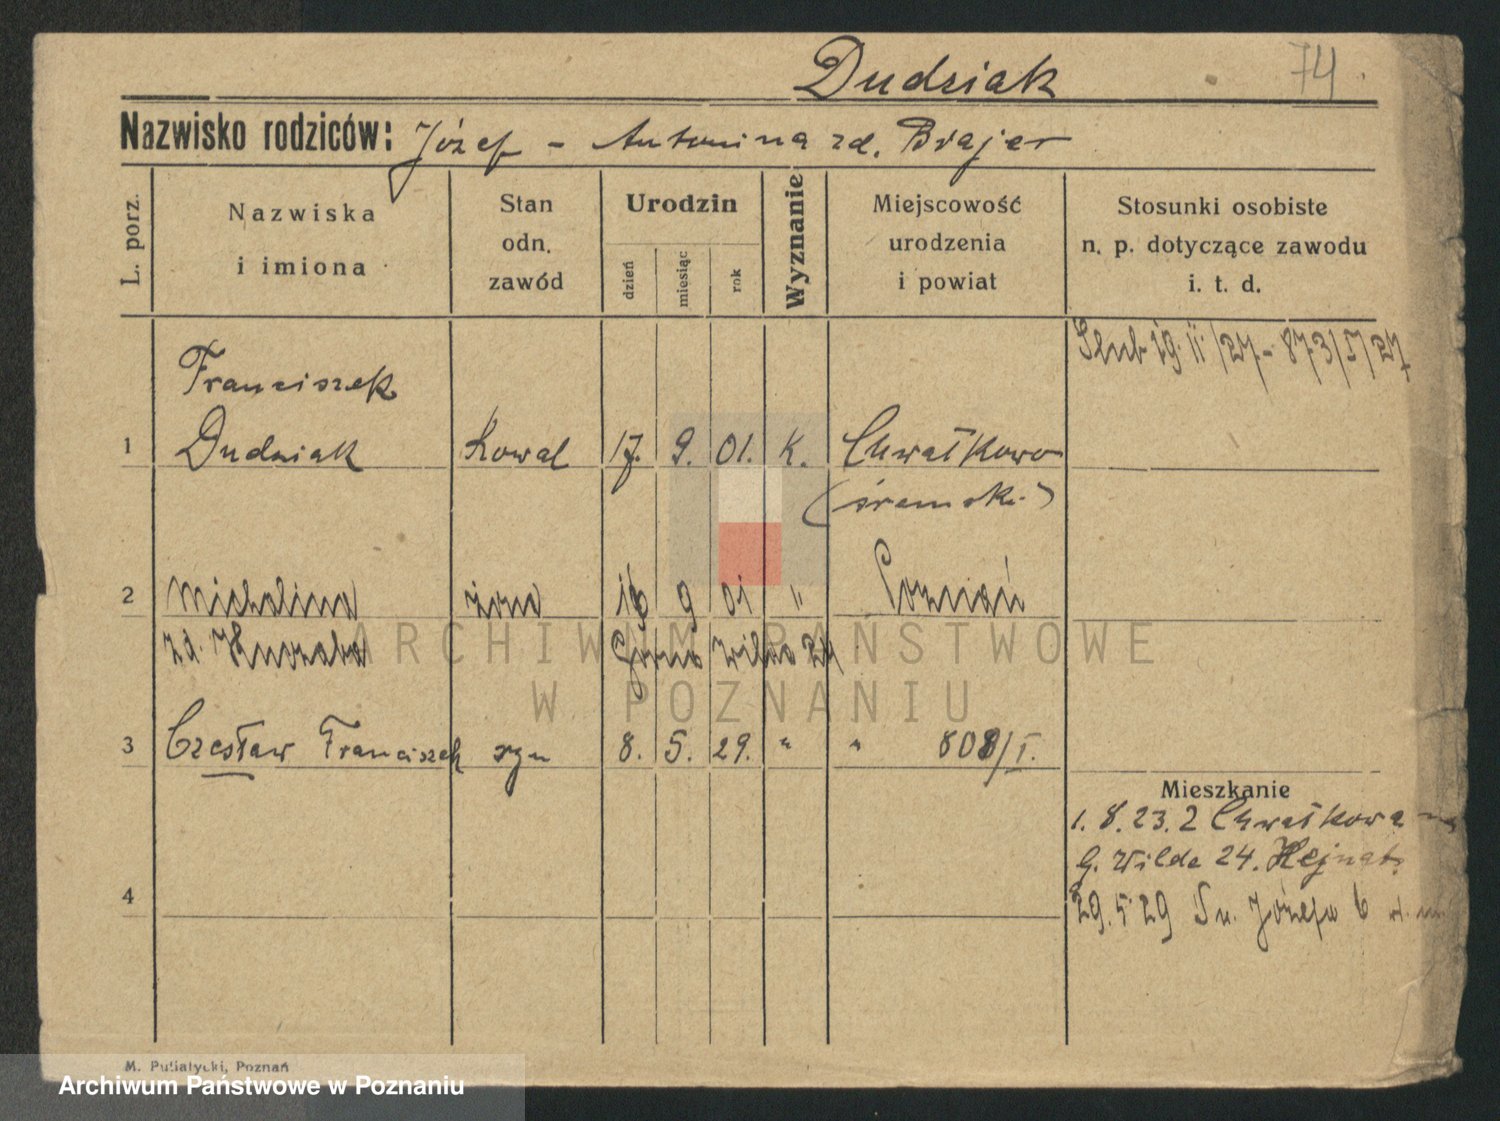 Dudziak 74
Nazwisko rodziców: Józef - Antonina zd. Brajer
L. porz.
Nazwiska
i imiona
Stan
odn.
zawód
Urodzin
dzień
miesiąc
rok
Wyznanie
Miejscowość
urodzenia
i powiat
Stosunki osobiste
n. p. dotyczące zawodu
i. t. d.
Ślub 19. II. /27 - 873/5/27
Franciszek
1 Dudziak Kowal 17. 9. 01. k. Chwałkowo
(śremski)
2 Michalina żona 16 9 01 " Poznań
zd. Górna Wilda 24
3 Czesław Franciszek syn 8. 5. 29. " " 808/I.
Mieszkanie
1. 8. 23. z Chwałkowa
G. Wilda 24.
4
29. 5 29 Św. Józefa 6
M. Putiatycki, Poznań
ARCHIWUM PAŃSTWOWE
W POZNANIU
Archiwum Państwowe w Poznaniu